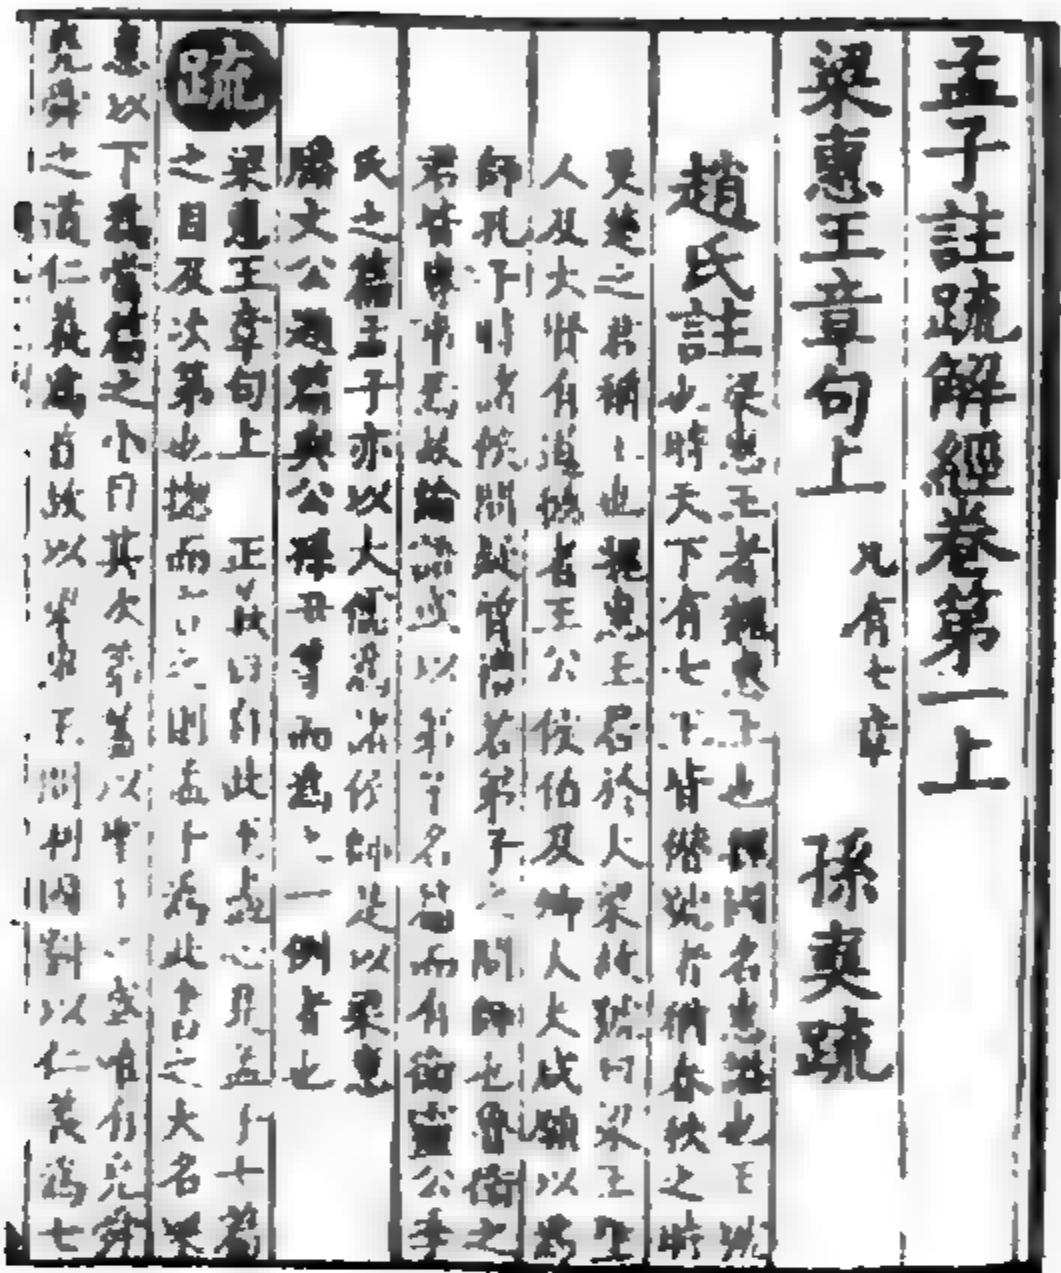 孟子註疏解經卷第一上
梁惠王章句上 凡有七章 孫奭疏
趙氏註 梁惠王者魏惠王也魏國名惠謚也王號
也時天下有七王皆僭號者猶春秋之時
吳楚之君稱王也魏惠王居於大梁故號曰梁王聖
人及大賢有道德者王公侯伯及卿大夫咸願以為
師孔子時諸侯問疑質禮若弟子之問師也魯衛之
君皆專事焉故論語或以弟子名篇而有衛靈公季
氏之篇孟子亦以大儒為諸侯師是以梁惠
滕文公題篇與公孫丑等而為之一例者也
疏 梁惠王章句上 正義曰自此至盡心是孟子七篇
之目及次第也總而言之則孟子為此書之大名
惠以下為當篇之小目其次第蓋以聖王之盛唯有堯舜
堯舜之道仁義為首故以梁惠王問利國對以仁義為七